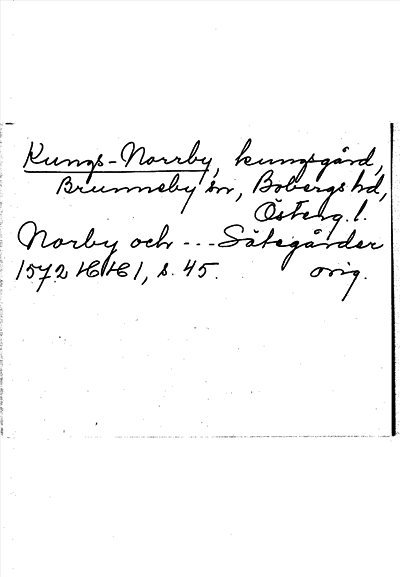 Kungs-Norrby, kungsgård,
Brunneby sn, Bobergs hd,
Österg. l.
Norby och --- Sätegårder
1572 HH 1, s. 45. orig.